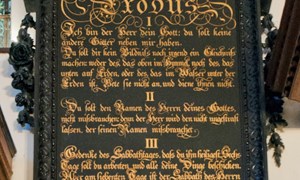 Exodus
I
Ich bin der Herr dein Gott: du solt keine
andere Götter neben mir haben.
Du solt dir kein Bildnis noch irgend ein Gleichnis
machen weder des, das oben im Himel, noch des, das
unten auf Erden, oder des, das im Wasser unter der
Erden ist, Bete sie nicht an, und diene ihnen nicht.
II
Du solt den Namen des Herrn deines Gottes,
nicht misbrauchen; denn der Herr wird den nicht ungestraft
lassen, der seinen Namen misbrauchet.
III
Gedenke des Sabbathtages, das du ihn heiligest. Sechs
Tage solt du arbeiten, und alle deine Dinge beschicken.
Aber am siebenten Tage ist der Sabbath des Herrn